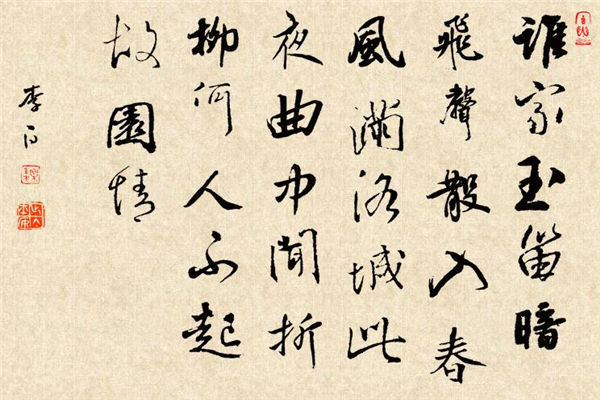 誰家玉笛暗
飛聲散入春
風滿洛城此
夜曲中聞折
柳何人不起
故園情
李白